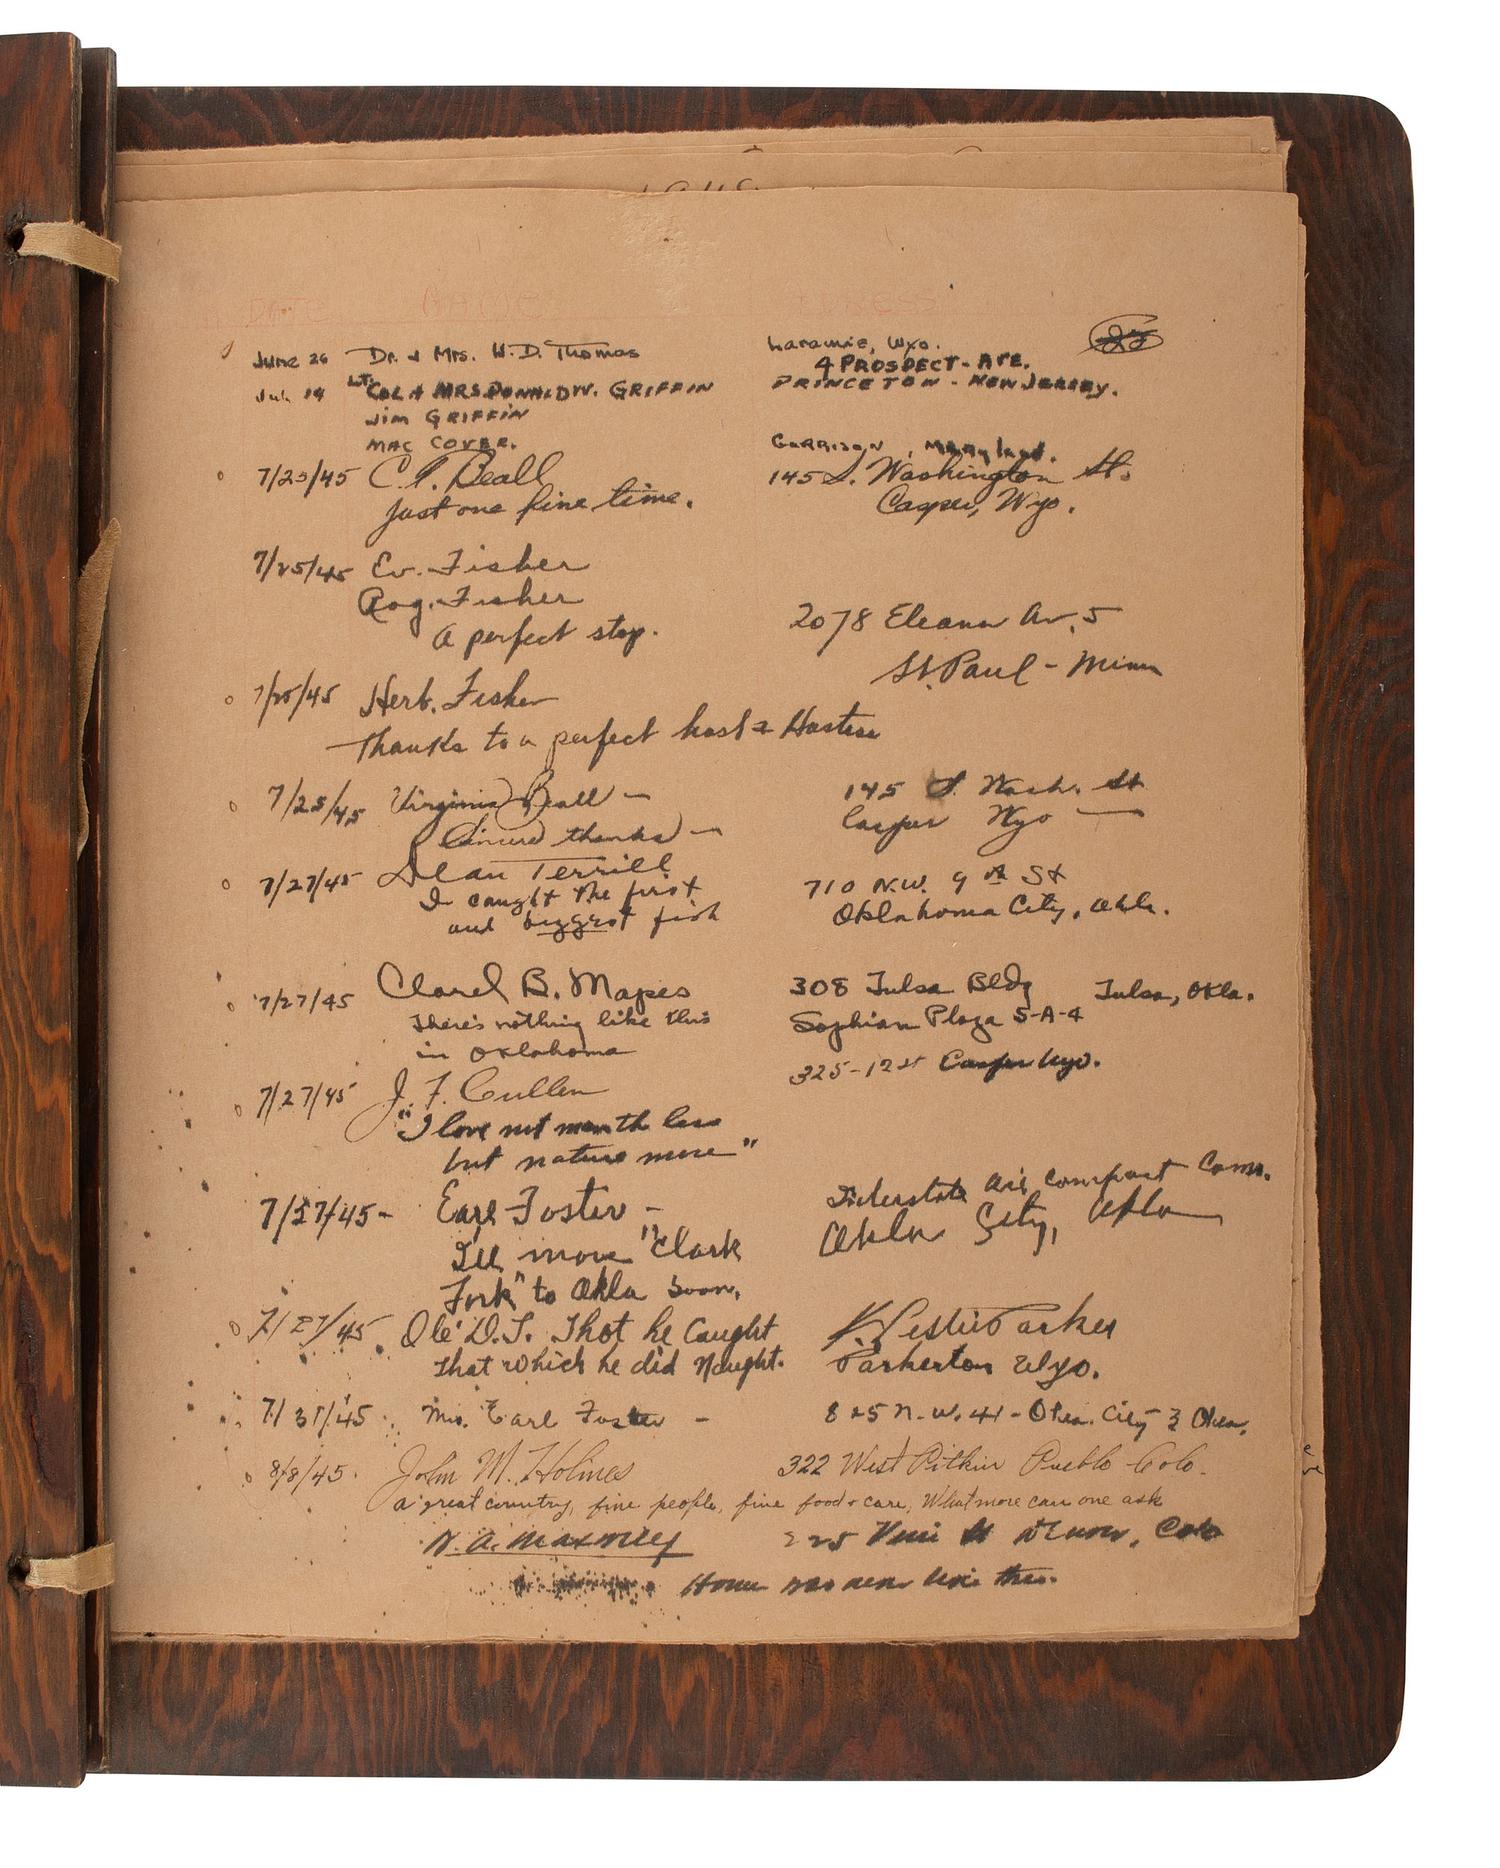 DATE NAME ADRESS
June 26 Dr. & Mrs. W. D. Thomas Laramie, Wyo.
4 PROSPECT - AVE.
July 19 Lt. COL & MRS. DONALD W. GRIFFIN PRINCETON - NEW JERSEY.
Jim GRIFFIN
MAC COVER. GARRISON, Maryland.
7/25/45 C. A. Beall 145 S. Washington St.
Just one fine time. Casper, Wyo.
7/25/45 Ev. Fisher
Rog. Fisher 2078 Eleanor Av. 5
A perfect stop. St. Paul - Minn
7/25/45 Herb. Fisher
Thanks to a perfect host & Hostess
7/25/45 Virginia Beall — 145 S. Wash. St
Sincere thanks — Casper Wyo —
7/27/45 Dean Terrill 710 N.W. 9th St
I caught the first Oklahoma City, Okla.
and biggest fish
7/27/45 Clarel B. Mapes 308 Tulsa Bldg Tulsa, Okla.
There's nothing like this Sophian Plaza 5-A-4
in Oklahoma
7/27/45 J. F. Cullen 325-12 St Casper Wyo.
"I love not man the less
but nature more"
7/27/45 - Earl Foster - Interstate Oil Compact Com.
I'll move "Clark Okla City, Okla
Fork" to Okla soon.
7/27/45 Ole' D.T. Thot he Caught Leslie Parker
that which he did Naught. Parkerton Wyo.
7/31/45 Mrs. Earl Foster - 825 N.W. 41 - Okla. City 3 Okla.
8/8/45. John M. Holmes 322 West Pitkin Pueblo Colo.
a great country, fine people, fine food & care, What more can one ask
225 Denver, Colo
Home was never like this.